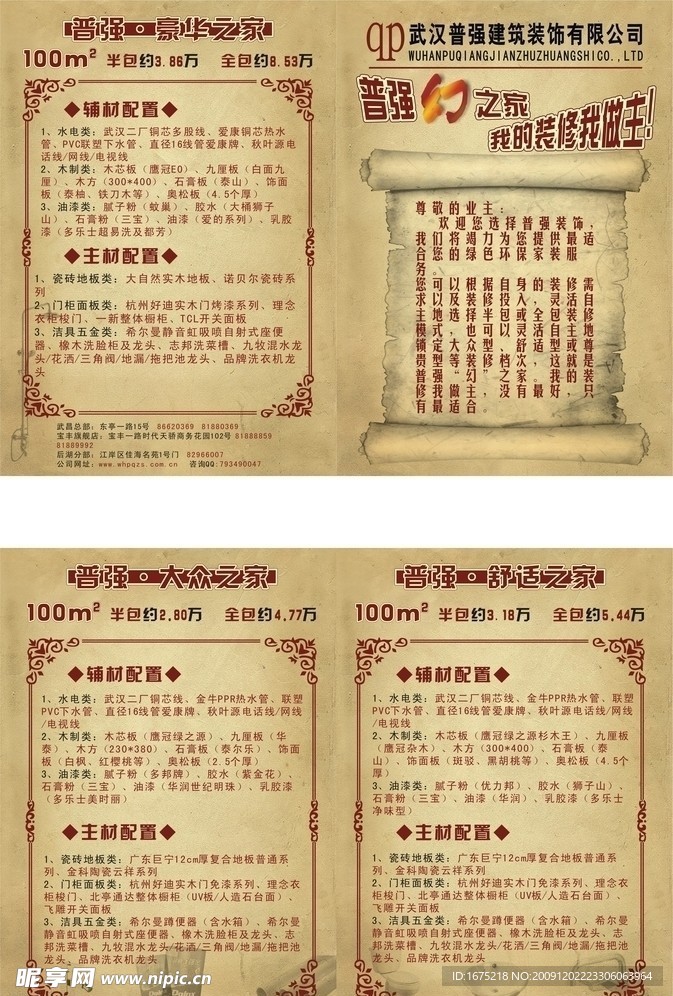 普强·豪华之家
100m² 半包约3.86万 全包约8.53万
◆辅材配置◆
1、水电类：武汉二厂铜芯多股线、爱康铜芯热水
管、PVC联塑下水管、直径16线管爱康牌、秋叶源电
话线/网线/电视线
2、木制类：木芯板（鹰冠E0）、九厘板（白面九
厘）、木方（300*400）、石膏板（泰山）、饰面
板（泰柚、铁刀木等）、奥松板（4.5个厚）
3、油漆类：腻子粉（蚊巢）、胶水（大桶狮子
山）、石膏粉（三宝）、油漆（爱的系列）、乳胶
漆（多乐士超易洗及都芳）
◆主材配置◆
1、瓷砖地板类：大自然实木地板、诺贝尔瓷砖系
列
2、门柜面板类：杭州好迪实木门烤漆系列、理念
衣柜梭门、一新整体橱柜、TCL开关面板
3、洁具五金类：希尔曼静音虹吸喷自射式座便
器、橡木洗脸柜及龙头、志邦洗菜槽、九牧混水龙
头/花洒/三角阀/地漏/拖把池龙头、品牌洗衣机龙
头
武昌总部：东亭一路15号 86620369 81880369
宝丰旗舰店：宝丰一路时代天骄商务花园102号 81888859
81889992
后湖分部：江岸区佳海名苑1号门 82966007
公司网址：www.whpqzs.com.cn 咨询QQ:793490047
qp 武汉普强建筑装饰有限公司
WUHANPUQIANGJIANZHUZHUANGSHICO.,LTD
普强幻之家
我的装修我做主！
尊敬的业主：
欢迎您选择普强装饰，
我们将竭力为您提供最适
合您的绿色环保家装服
务。
您可以根据自身的装修需
求以及装修投入，灵活自
主地选择半包或全包装修
模式，也可以灵活自主地
锁定大众型、舒适型或尊
贵型等装修档次，这就是
普强“幻”之家。我的装
修我做主，没有最好，只
有最适合
普强·大众之家
100m² 半包约2.80万 全包约4.77万
◆辅材配置◆
1、水电类：武汉二厂铜芯线、金牛PPR热水管、联塑
PVC下水管、直径16线管爱康牌、秋叶源电话线/网线
/电视线
2、木制类：木芯板（鹰冠绿之源）、九厘板（华
泰）、木方（230*380）、石膏板（泰尔乐）、饰面
板（白枫、红樱桃等）、奥松板（2.5个厚）
3、油漆类：腻子粉（多邦牌）、胶水（紫金花）、
石膏粉（三宝）、油漆（华润世纪明珠）、乳胶漆
（多乐士美时丽）
◆主材配置◆
1、瓷砖地板类：广东巨宁12cm厚复合地板普通系
列、金科陶瓷云祥系列
2、门柜面板类：杭州好迪实木门免漆系列、理念衣
柜梭门、北亭通达整体橱柜（UV板/人造石台面）、
飞雕开关面板
3、洁具五金类：希尔曼蹲便器（含水箱）、希尔曼
静音虹吸喷自射式座便器、橡木洗脸柜及龙头、志
邦洗菜槽、九牧混水龙头/花洒/三角阀/地漏/拖把池
龙头、品牌洗衣机龙头
普强·舒适之家
100m² 半包约3.18万 全包约5.44万
◆辅材配置◆
1、水电类：武汉二厂铜芯线、金牛PPR热水管、联塑
PVC下水管、直径16线管爱康牌、秋叶源电话线/网线
/电视线
2、木制类：木芯板（鹰冠绿之源杉木王）、九厘板
（鹰冠杂木）、木方（300*400）、石膏板（泰
山）、饰面板（斑驳、黑胡桃等）、奥松板（4.5个
厚）
3、油漆类：腻子粉（优力邦）、胶水（狮子山）、
石膏粉（三宝）、油漆（华润）、乳胶漆（多乐士
净味型）
◆主材配置◆
1、瓷砖地板类：广东巨宁12cm厚复合地板普通系
列、金科陶瓷云祥系列
2、门柜面板类：杭州好迪实木门免漆系列、理念衣
柜梭门、北亭通达整体橱柜（UV板/人造石台面）、
飞雕开关面板
3、洁具五金类：希尔曼蹲便器（含水箱）、希尔曼
静音虹吸喷自射式座便器、橡木洗脸柜及龙头、志
邦洗菜槽、九牧混水龙头/花洒/三角阀/地漏/拖把池
龙头、品牌洗衣机龙头
昵享网 www.nipic.cn
ID:1675218 NO:20091202223306063954